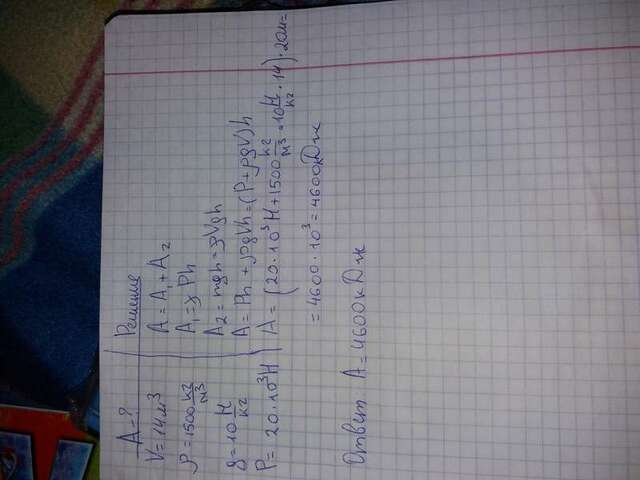 A-?
V=14м³
ρ=1500 кг/м³
g=10 Н/кг
P=20·10³Н
Решение
A=A₁+A₂
A₁=Ph
A₂=mgh=ρVgh
A=Ph+ρgVh=(P+ρgV)h
A=(20·10³Н+1500 кг/м³·10 Н/кг·14)·20м=
=4600·10³=4600кДж
Ответ A=4600кДж